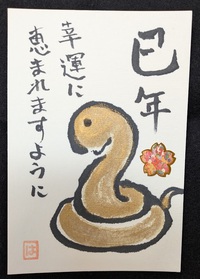 巳年
幸運に
恵まれますように